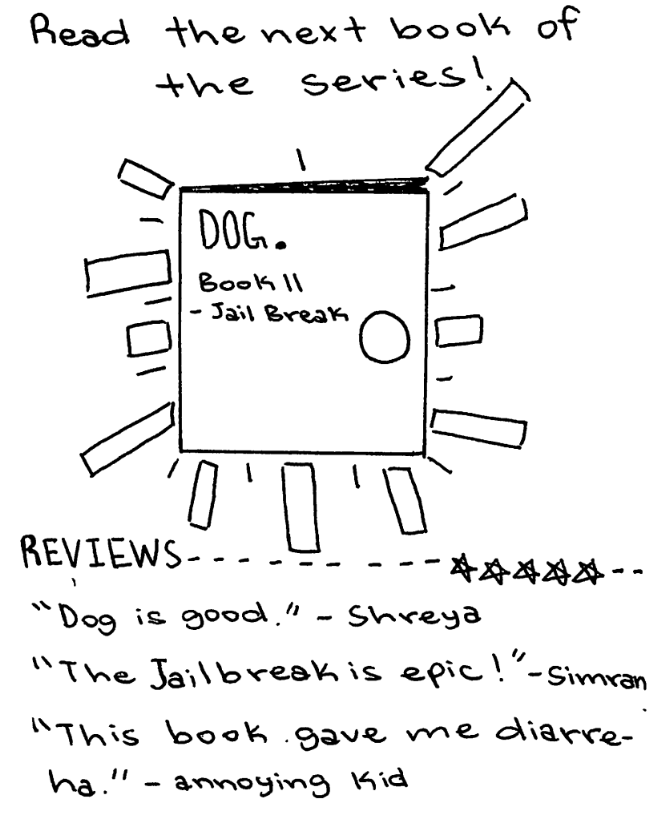 Read the next book of
the series!
DOG.
Book II
- Jail Break
REVIEWS
"Dog is good." - Shreya
"The Jailbreak is epic!" - Simran
"This book gave me diarre-
ha." - annoying kid